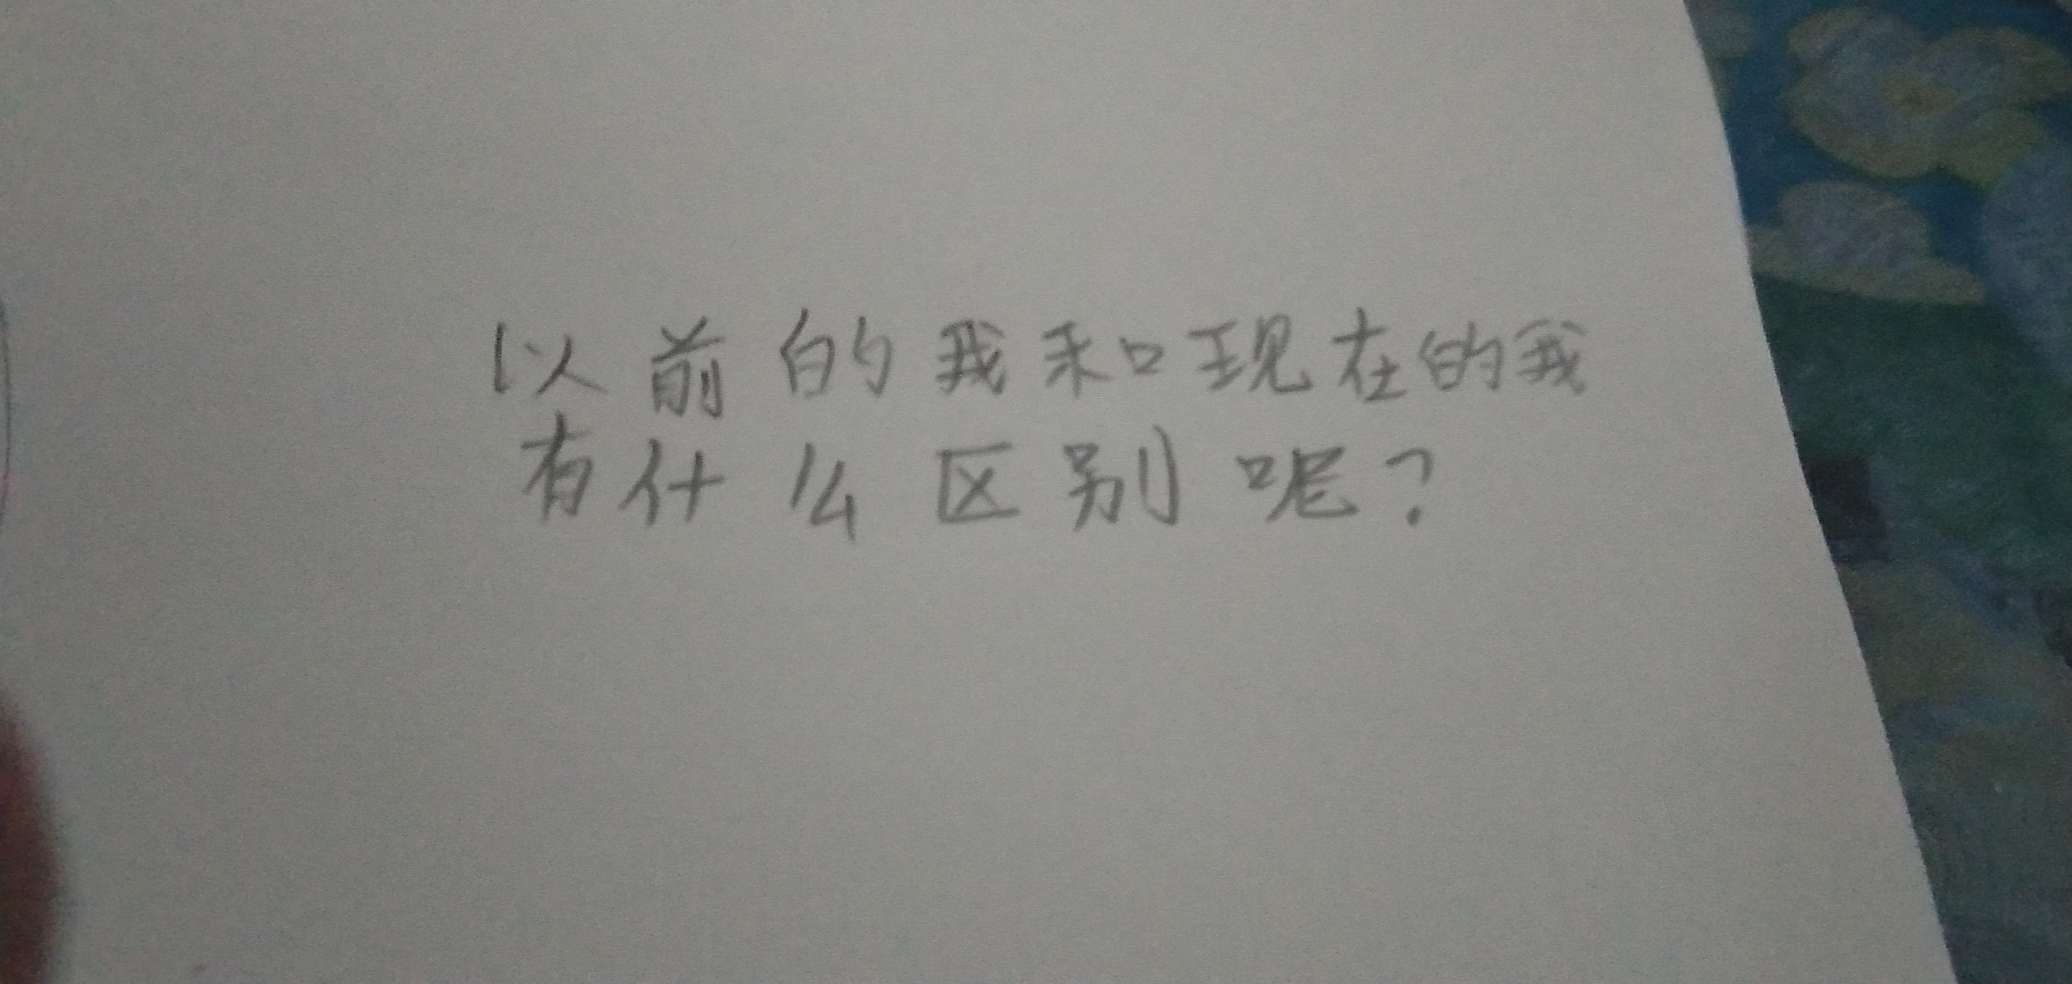 以前的我和现在的我
有什么区别呢？